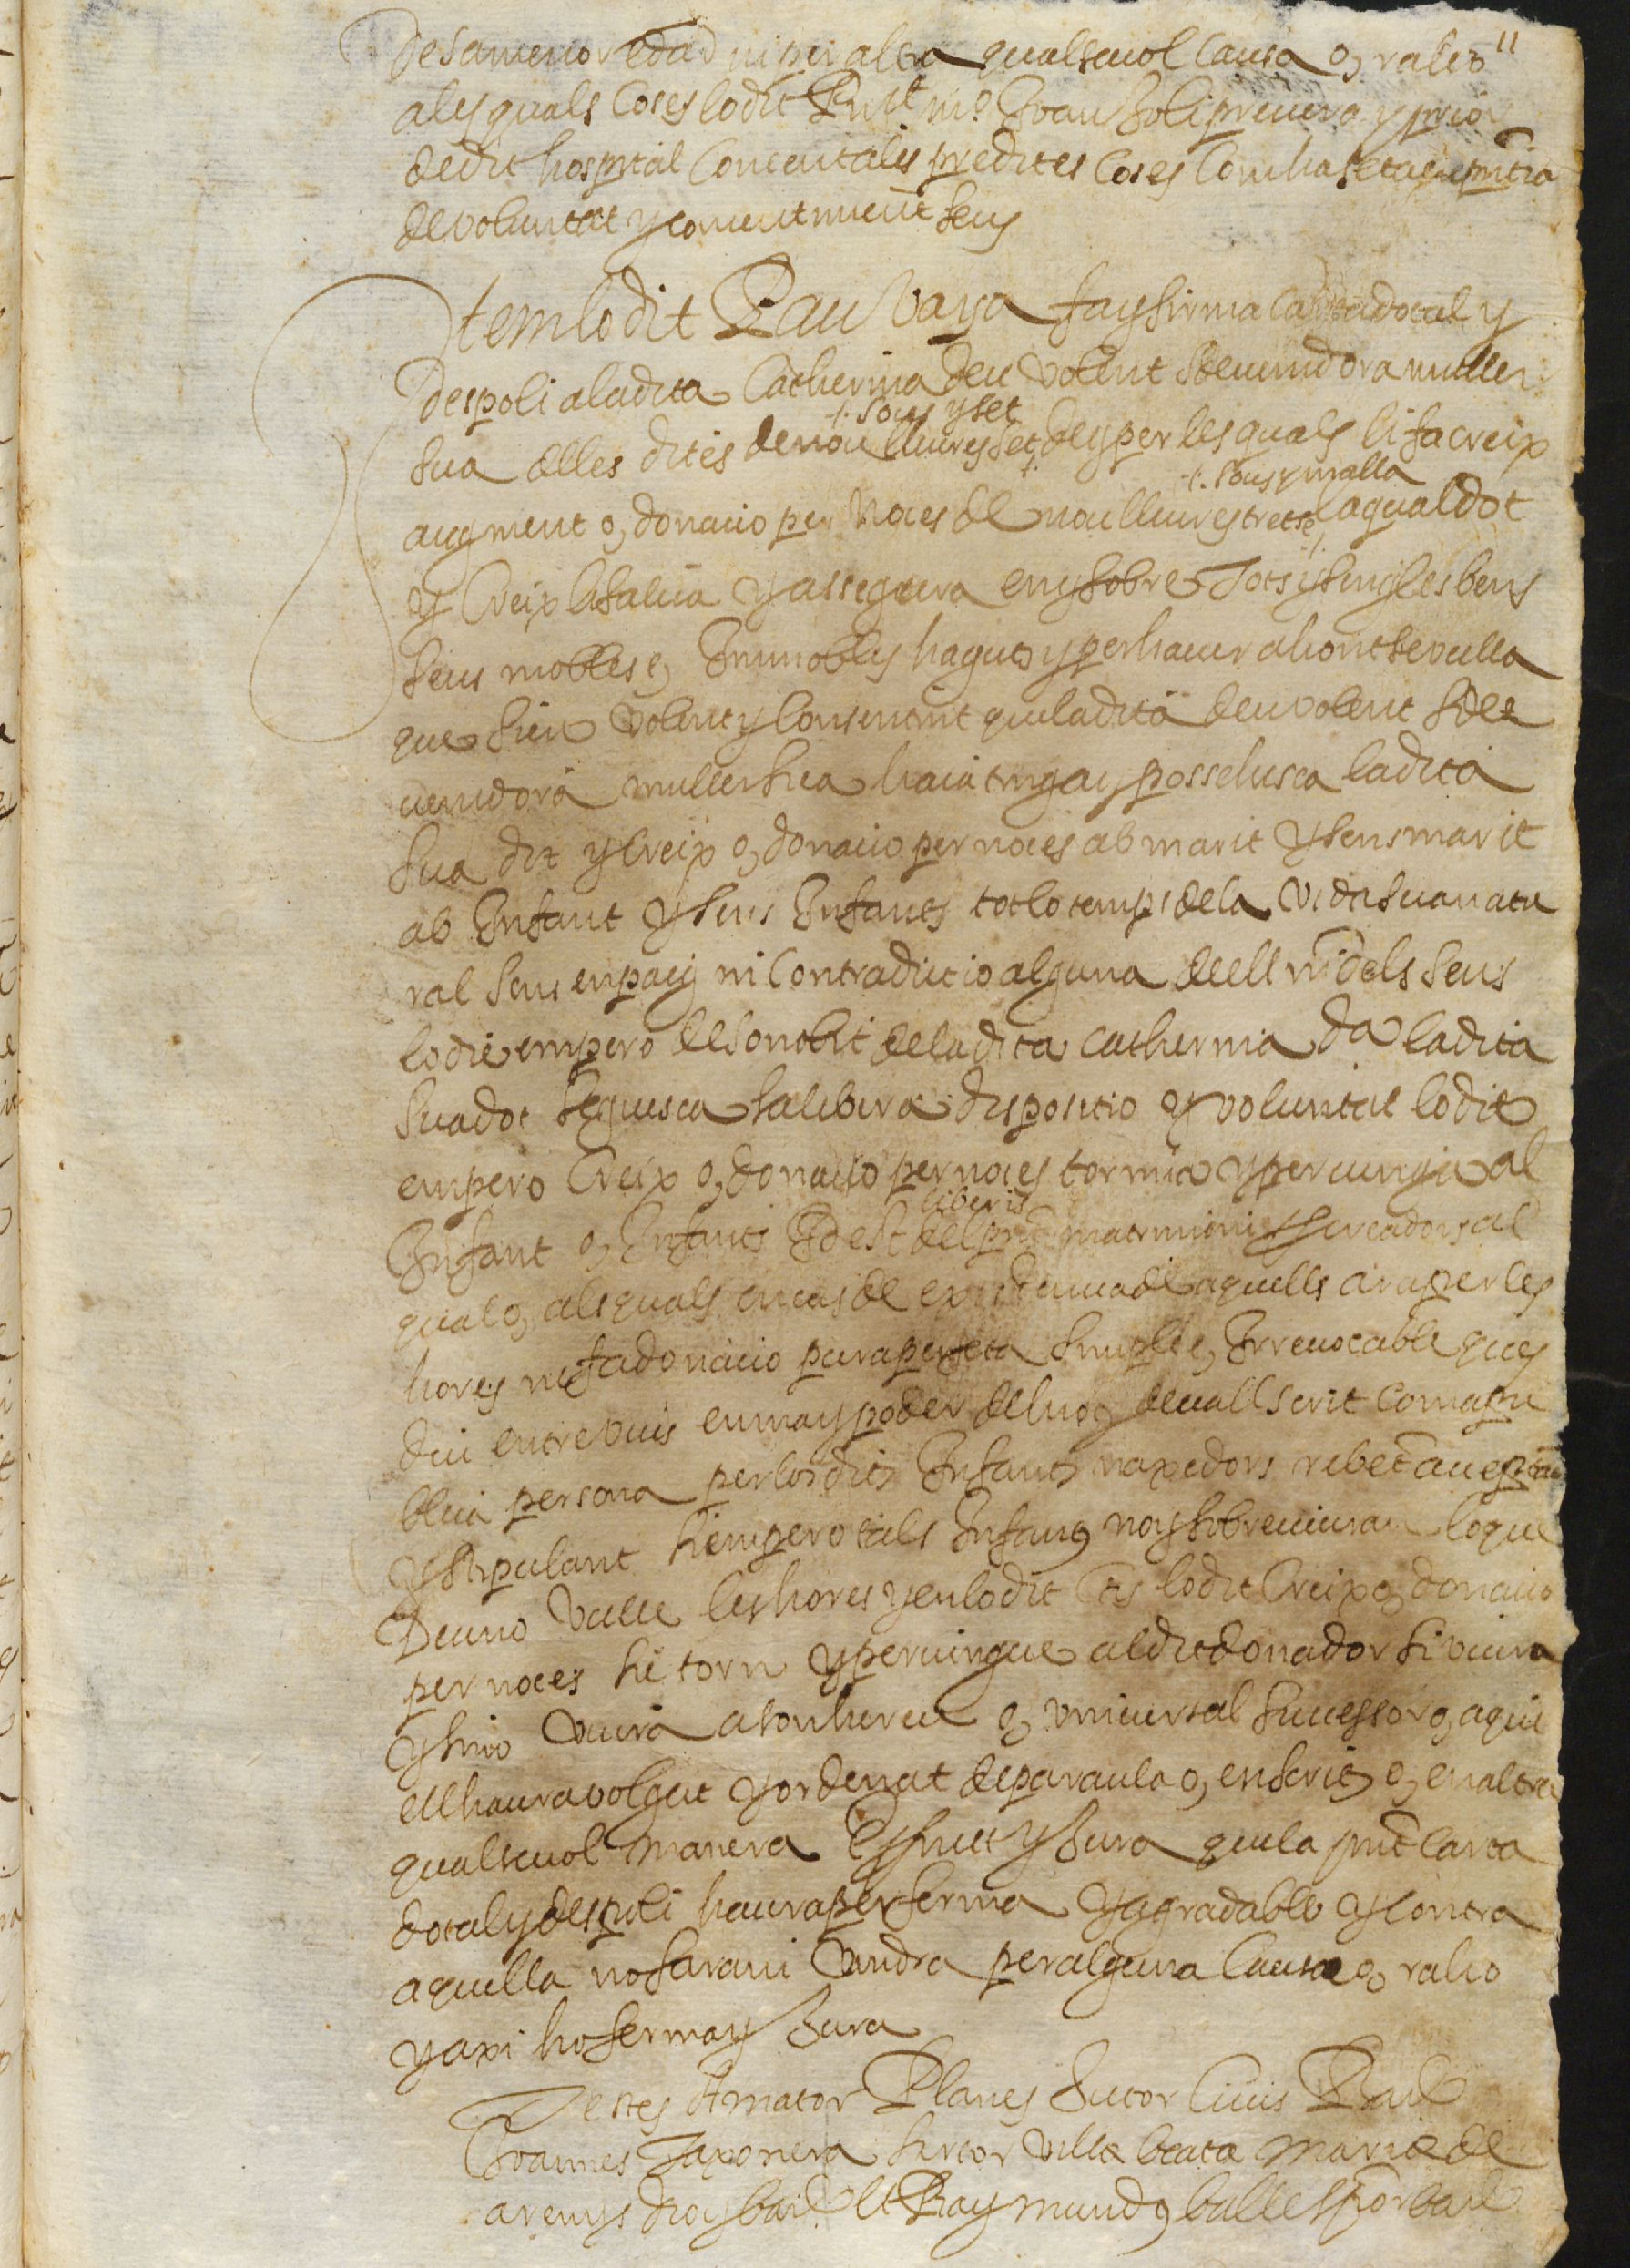 11
de sa menor edad ni per altra qualsevol causa o, rahó
a les quals coses lo dit Rnt mº Joan Soli prevere y prior
de dit hospital consent a les predites coses com ha fetas en pntia
de voluntat y consentiment seus
Item lo dit Pau Vaya fa y firma carta dotal y
de spoli a la dita Catherina deu volent sdevenidora muller
.sous y set
sua de les dites de nou lliures set, de y per les quals li fa creix
.sous y malla
augment o, donacio per noces de nou lliures tretse, la qual dot
y creix li salva y assegura en y sobre tots y sengles bens
seus mobles e, Immobles haguts y per haver ahont se vulla
que sien volent y consentint que la dita deu volent sde
venidora muller sua haia tinga y possehesca la dita
sua dot y creix o, donacio per noces ab marit y sens marit
ab Infant y sens Infants tot lo temps de la vida sua natu
ral sens enpaig ni contradictio alguna de ell ni dels seus
lo die empero de son obit de la dita Catherina da la dita
sua dot seguesca sa libera dispositio y voluntat lo dit
empero creix o, donacio per noces torn a y pervinga al
liberis
Infant o, Infants de st del pnt matrimoni procreadors al
qual o, als quals en cas de existencia de aquells ara per les
hores ne fa donacio pura perfeta simple e, Irrevocable ques
diu entre vius en ma y poder del not devall scrit com a pu
blica persona per los dits Infants naxedors rebet acceptan
y stipulant si empero tals Infants no y sobreviuran lo que
Deu no vulle les hores y en lo dit cas lo dit creix o, donacio
per noces sie torn y pervingue al dit donador si viura
y si no viura a son hereu o, universal successor o, a qui
ell haura volgut y ordenat de paraula o, en scrits o, en altra
qualsevol manera E promet y jura que la pnt carta
dotal y de spoli haura per ferma y agradable y contra
aquella no fara ni vindra per alguna causa o, raho
y axi ho ferma y jura
Testes Amator Planes sutor civis Barᵉ
Joannes Taxonera sertor ville beata Maria de
arenys diocᵉ bare et Raymundus balle scriptor bare